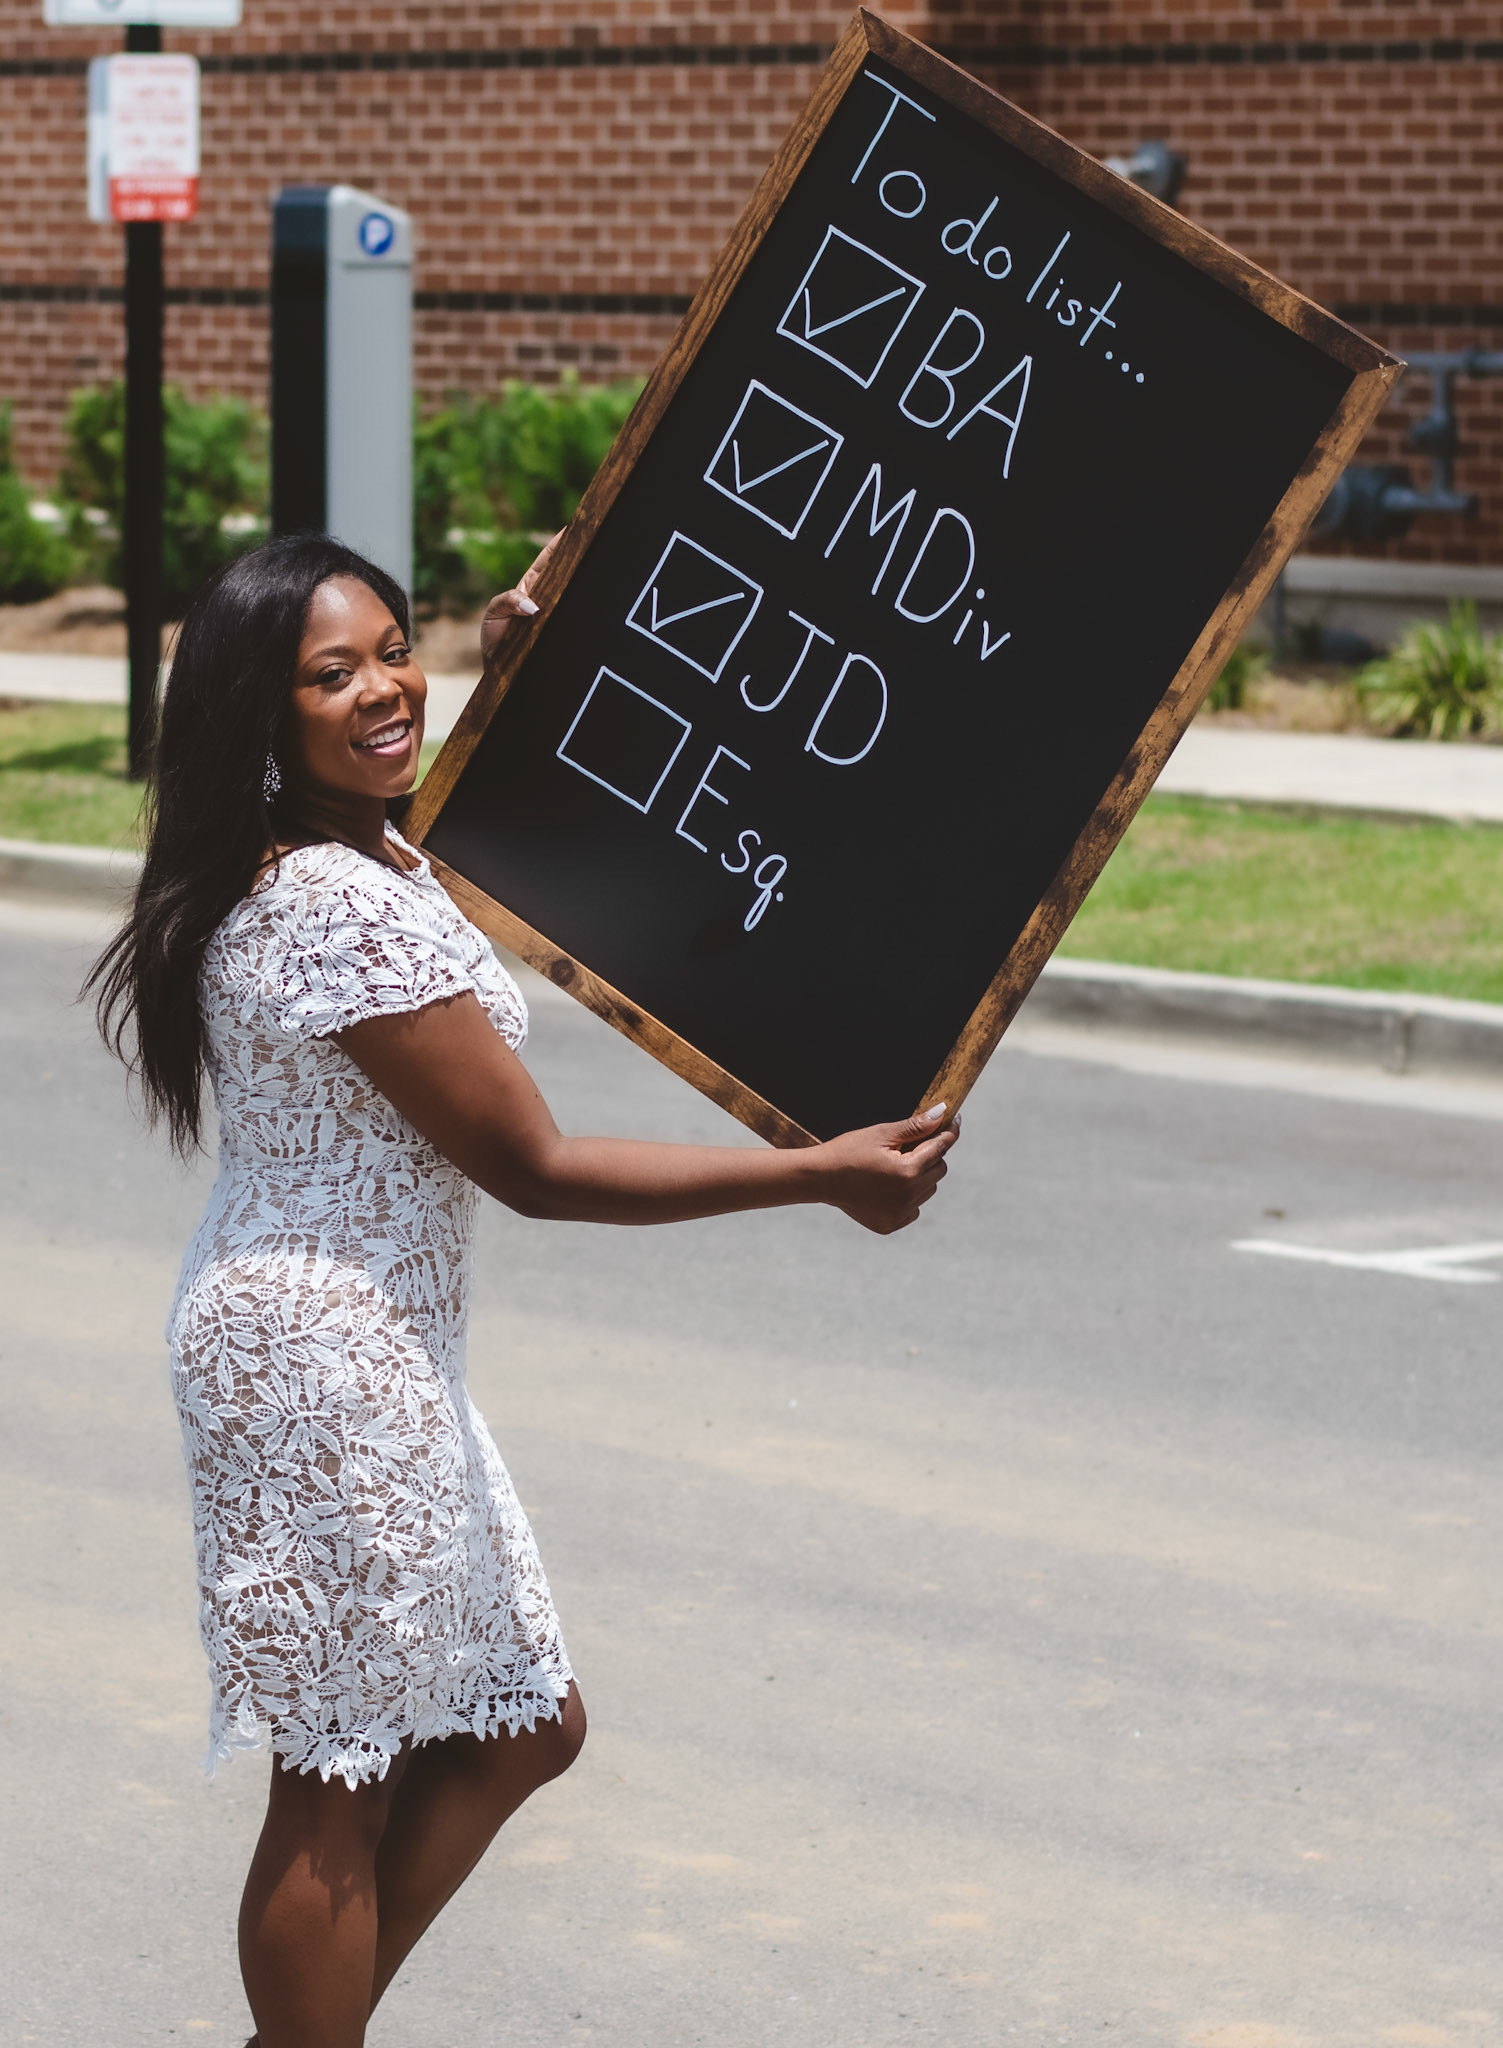 To do list...
BA
MDiv
JD
Esq.
P